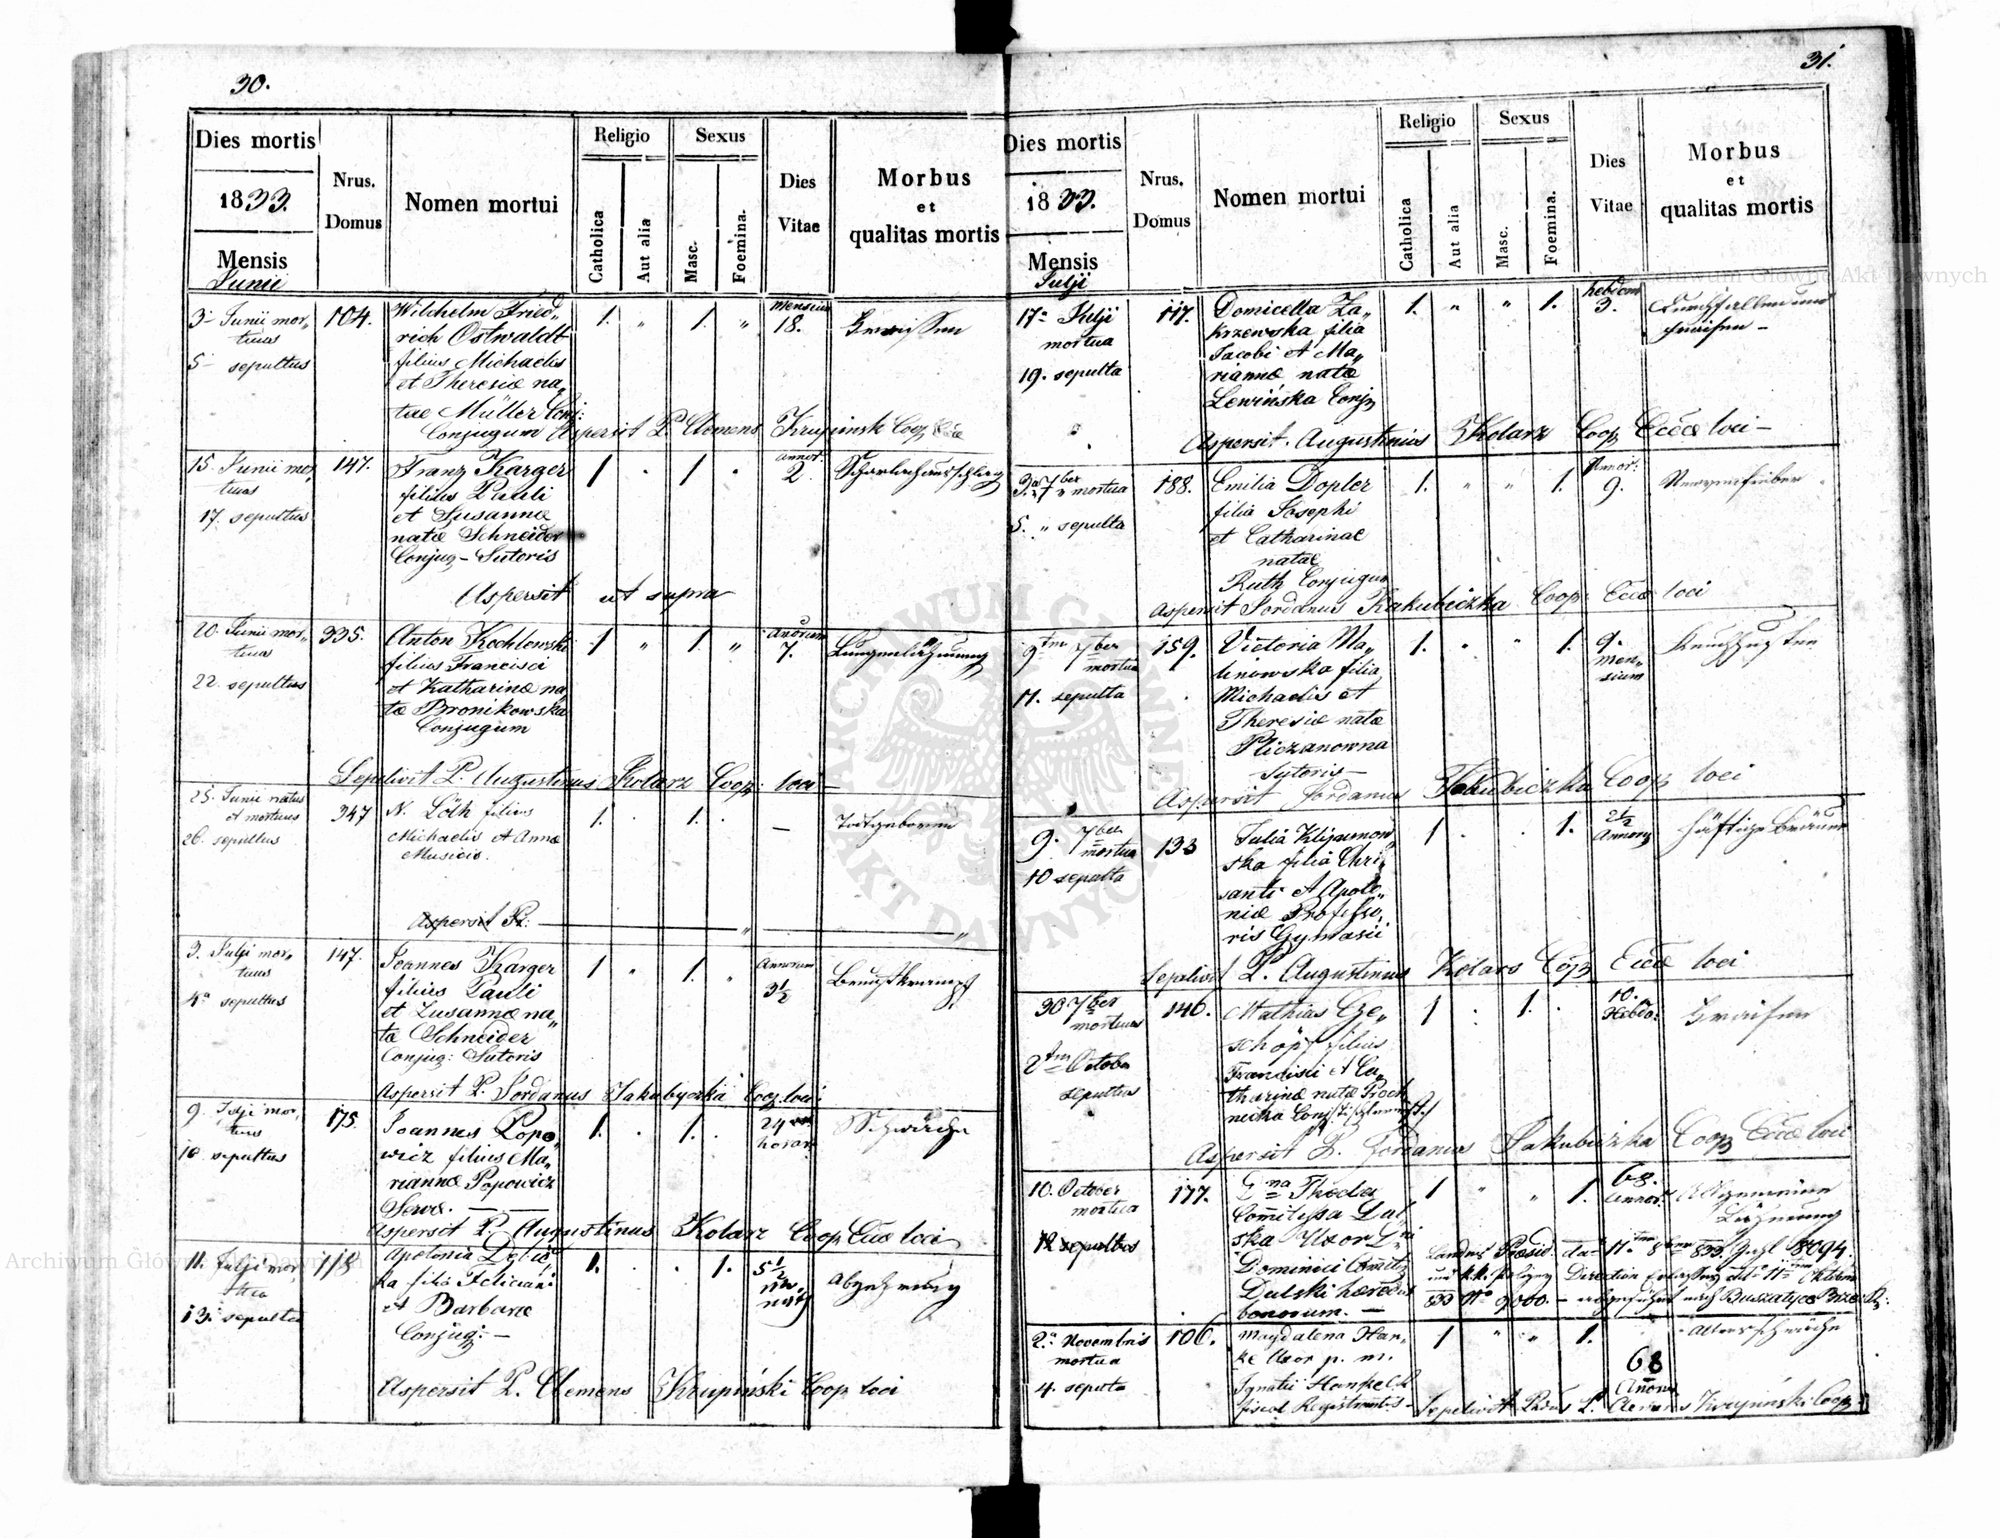 30.
Dies mortis
1833.
Mensis
Junii
Nrus.
Domus
Nomen mortui
Religio
Catholica
Aut alia
Sexus
Masc.
Foemina.
Dies
Vitae
Morbus
et
qualitas mortis
3 Junii mor„
tuus
5 sepultus
104.
Wilhelm Fried„
rich Ostwaldt
filius Michaelis
et Theresiæ na„
tae Müller Conj:
Conjugum Aspersit P. Clemens Krupinsk Coop
1. „ 1. „
Mensium
18.
15. Junii mor„
tuus
17. sepultus
147.
Franz Karger
filius Pauli
et Susannæ
natæ Schneider
Conjug – Sutoris
1 . 1 .
Annor.
2
Aspersit ut supra
20. Junii mor„
tuus
22. sepultus
335.
Anton Kochlowski
filius Francisci
et Katharinæ na„
tæ Bronikowska
Conjugum
1 „ 1. „
Annorum
7.
Lungenlähmung
Sepelivit P. Augustinus Kolarz Coop. loci
25. Junii natus
et mortuus
26. sepultus
347
N. Löth filius
Michaelis et Annæ
Musicis.
1. . 1. .
—
Todtgeboren
Aspersit P. — „ — „
3. Julji mor„
tuus
4ª sepultus
147.
Joannes Karger
filius Pauli
et Zusannæ na„
tæ Schneider
Conjug: Sutoris
1 „ 1. „
Annorum
3½
Aspersit P. Jordanus Jakubyczka Coop loci
9. Julji mor„
tuus
10. sepultus
175.
Joannes Popo„
wicz filius Ma„
riannæ Popowicz
Servæ. —
1. . 1. .
24
horar.
Schwäche
Aspersit P. Augustinus Kolarz Coop Eccæ loci
11. Julji mor„
tua
13. sepulta
118
Apolonia
ka filia Feliciani
et Barbaræ
Conjug: —
1. . . 1.
5½
Abzehrung
Aspersit P. Clemens Krupiński Coop loci
31.
Dies mortis
1833.
Mensis
Julji
Nrus.
Domus
Nomen mortui
Religio
Catholica
Aut alia
Sexus
Masc.
Foemina.
Dies
Vitae
Morbus
et
qualitas mortis
17ª Julji
mortua
19. sepulta
117.
Domicella Za„
krzewska filia
Jacobi et Ma„
riannæ natæ
Lewińska Conj
1. „ „ 1.
hebdom
3.
Aspersit. Augustinus Kolarz Coop Eccæ loci –
3ª 7ber mortua
5. „ sepulta
188.
Emilia Dopler
filia Josephi
et Catharinae
natae
Ruth Conjugum
1. „ „ 1.
Annor:
9.
Nervenfieber
Aspersit Jordanus Kakubiczka Coop Eccæ loci
9 7ber
mortua
11. sepulta
159.
Victoria Ma„
linowska filia
Michaelis et
Theresiæ natæ
Pliczanowna
Sutoris –
1. . „ 1.
9.
men„
sium
Keuchhusten
Aspersit Jordanus Jakubiczka Coop loci
9. 7ber
mortua
10 sepulta
133
Julia Klisumow„
ska filia Chri„
santi et Apolo„
niæ Professo„
ris Gymnasii
1 . . 1.
2½
Annorum
häftige Bräune
Sepelivit P. Augustinus Kolars Coop Eccæ loci
30 7ber
mortuus
2 October
sepultus
146.
Mathias Gze„
schöpf filius
Francisci et Ca„
tharinæ natæ
1 . 1. .
10.
Hebdo:
Aspersit P. Jordanus Jakubiczka Coop Eccæ loci
10. October
mortua
12 sepultus
177.
Dna Thecla
Comitissa Dul„
ska Uxor Dni
Dominici Comitis
Dulski hæredis
bonorum. —
1 „ „ 1.
68.
Annor.
Allgemeine
Lähmung
8094.
9060.
2ª Novembris
mortua
4. sepulta
106.
Magdalena Han„
ke Uxor p. m.
Ignatii Hanke
1 „ „ 1.
68
Annor.
Altersschwäche
Sepelivit P. Clemens Krupiński Coop.
ARCHIWUM GŁÓWNE AKT DAWNYCH
Archiwum Główne Akt Dawnych
Archiwum Główne Akt Dawnych